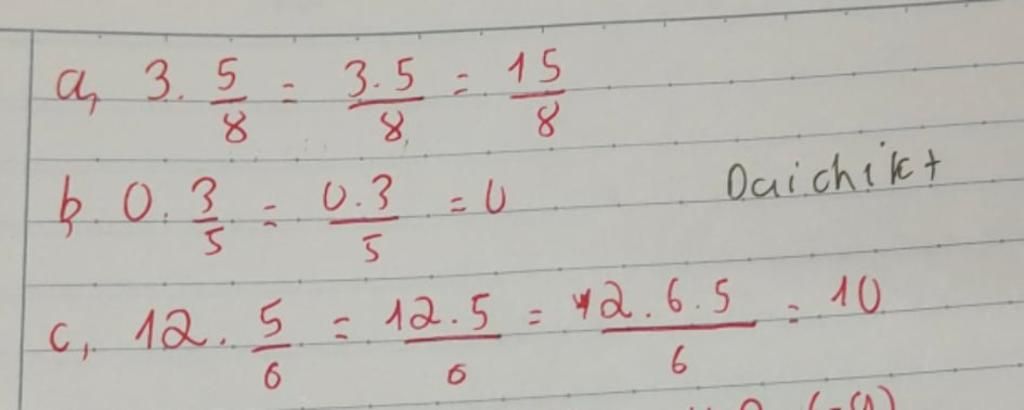 a, 3. 5/8 = 3.5/8 = 15/8
b, 0. 3/5 = 0.3/5 = 0
Daichikt
c, 12. 5/6 = 12.5/6 = 2.6.5/6 = 10